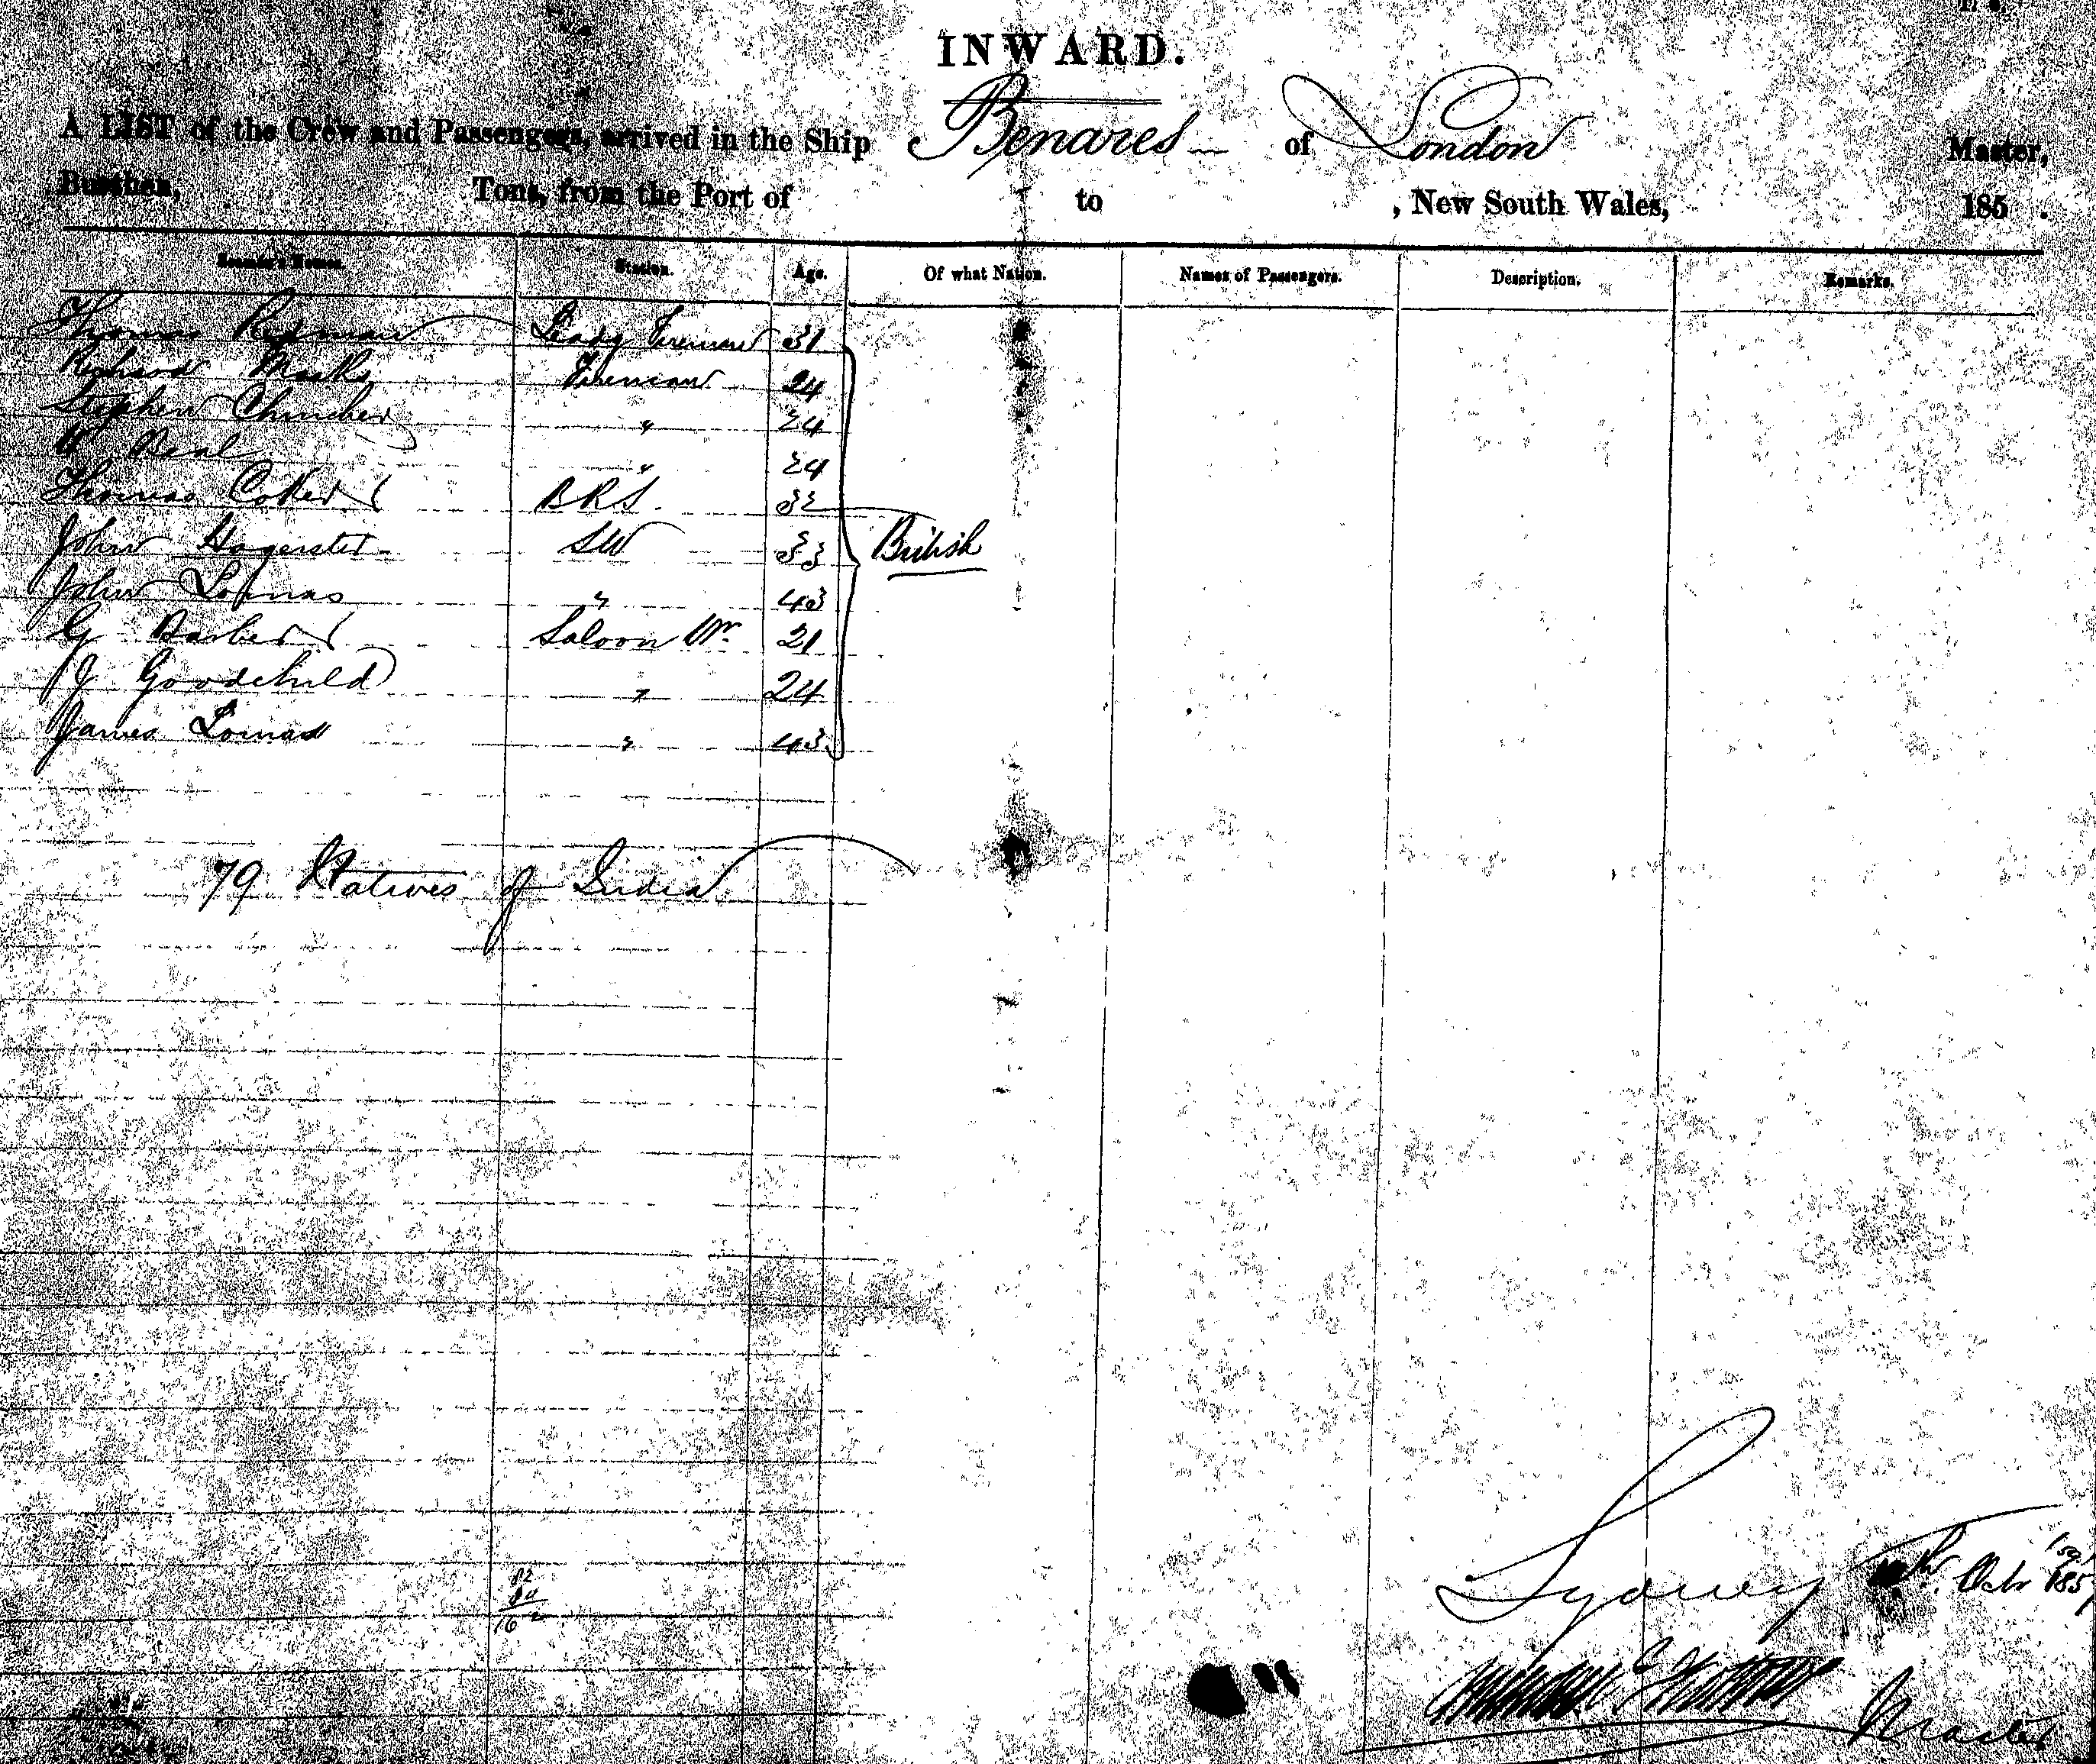 INWARD.
A LIST of the Crew and Passengers, arrived in the Ship Benares of London Master,
Burthen, Tons, from the Port of to , New South Wales, 185 .
Seaman's Names. Station. Age. Of what Nation. Names of Passengers. Description. Remarks.
Thomas Redman Leadg Fireman 31
Richard Marks Fireman 24
Stephen Churcher " 24
W Beal " 24
Thomas Coker BRS. 32
John SW 33 British
John Lomas " 43
G Barber Saloon Wr. 21
J Goodchild " 24
James Lomas " 43
79 Natives of India
82
80
162
Sydney Octr 1859
Master